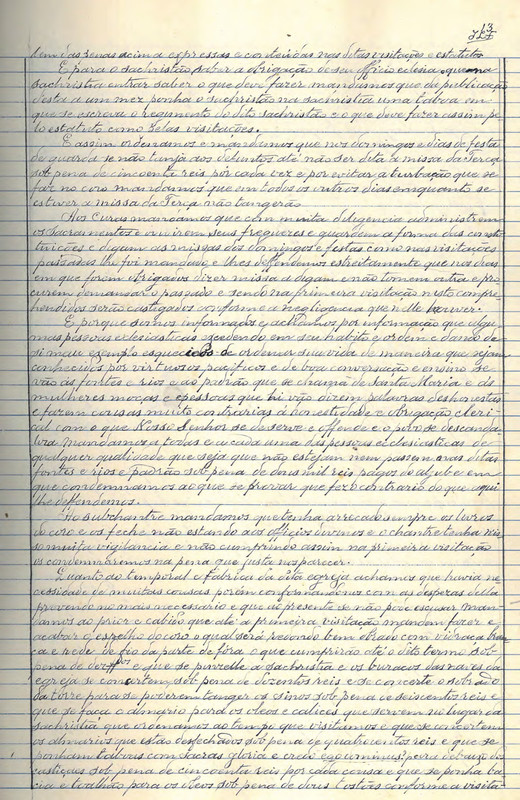 313
tem das penas acima expressas e conteudas nas ditas visitações e estatutos
E para o sachristão saber a obrigação de seu officio e
sachristia entrar saber o que deve fazer mandamos que da publicação
desta a um mez ponha o sachristão na sachristia uma taboa em
que se escreva o regimento do dito sachristão e o que deve fazer assim pe
lo estatuto como pelas visitações.
E assim ordenamos e mandamos que nos domingos e dias de festa
de guarda se não tanja aos defuntos até não ser dita a missa da Terça
sob pena de cincoenta reis por cada vez e por evitar a turbação que se
faz no coro mandamos que em todos os outros dias emquanto se
estiver a missa da Terça não tangerão
Aos Curas mandamos que com muita diligencia administrem
os Sacramentos e ouvirem seus freguezes e guardem a forma das consti
tuições e digam as missas dos domingos e festas como nas visitações
passadas lhe foi mandado e lhes deffendemos estreitamente que nos dias
em que forem obrigados dizer missa a digam e não tomem outra e pro
curem d'emansar o passado e sendo na primeira visitação nisto compre
hendidos serão castigados conforme a negligencia que nelle houver.
E porque somos informados e achamos por informação que algu
mas pessoas ecclesiasticas excedendo em seu habito e ordem e dando de
si mau exemplo esquecidos de ordenar sua vida de maneira que sejam
conhecidos por virtuosos, pacificos e de boa conversação e ensino se
vão ás fontes e rios e ao padrão que se chama de Santa Maria e ás
mulheres moças e pessoas que hi vão dizem palavras deshonestas
e fazem cousas muito contrarias á honestidade e obrigação cleri
cal com o que Nosso Senhor se deserve e offende e o povo se escanda
liza mandamos a todas e a cada uma das pessoas ecclesiasticas de
qualquer qualidade que seja que não estejam nem passem nas ditas
fontes e rios e padrão sob pena de dous mil reis pagos do aljube em
que condemnamos ao que se provar que fez o contrario do que aqui
lhe deffendemos.
Ao subchantre mandamos que tenha arrecado sempre os livros
do coro e os feche não estando aos officios divinos e o chantre tenha nis
so muita vigilancia e não cumprindo assim na primeira visitação
os condemnaremos na pena que justa nos parecer.
Quanto ao temporal e fabrica da dita egreja achamos que havia ne
cessidade de muitas cousas porém conformando-nos com as despezas della
provendo no mais necessario e que ao presente se não pode escusar man
damos ao prior e cabido que até a primeira visitação mandem fazer e
acabar o espelho do coro o qual será redondo bem obrado com vidraça bran
ca e rede de fio da parte de fóra o que cumprirão até o dito termo sob
pena de dez e que se a sachristia e os buracos das naves da
egreja se concertem sob pena de dozentos reis e se concerte o sobrado
da torre para se poderem tanger os sinos sob pena de seiscentos reis e
que se faça o almario para os oleos e calices que servem no lugar da
sachristia que ordenamos ao tempo que visitamos e que se concertem
os almarios que estão desfechados sob pena de quatrocentos reis e que se
ponham taboas com sacras gloria e credo para debaixo dos
castiçaes sob pena de cincoenta reis por cada cousa e que se ponha ba
cia e toalhas para os oleos sob pena de dous tostões conforme a visita